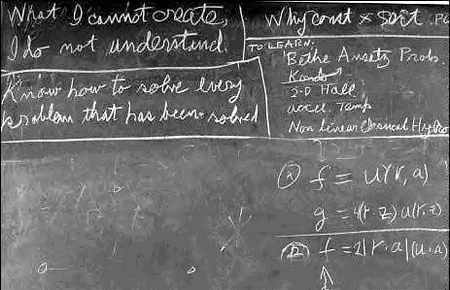 What I cannot create,
I do not understand.
Know how to solve every
problem that has been solved
Why const × sort . PO
TO LEARN:
Bethe Ansatz Probs.
Kondo
2-D Hall
accel. Temp
Non linear Classical Hydro
Ⓐ f = u(r, a)
g = 4(r·z) u(r, z)
f = 2|r·a|(u·a)